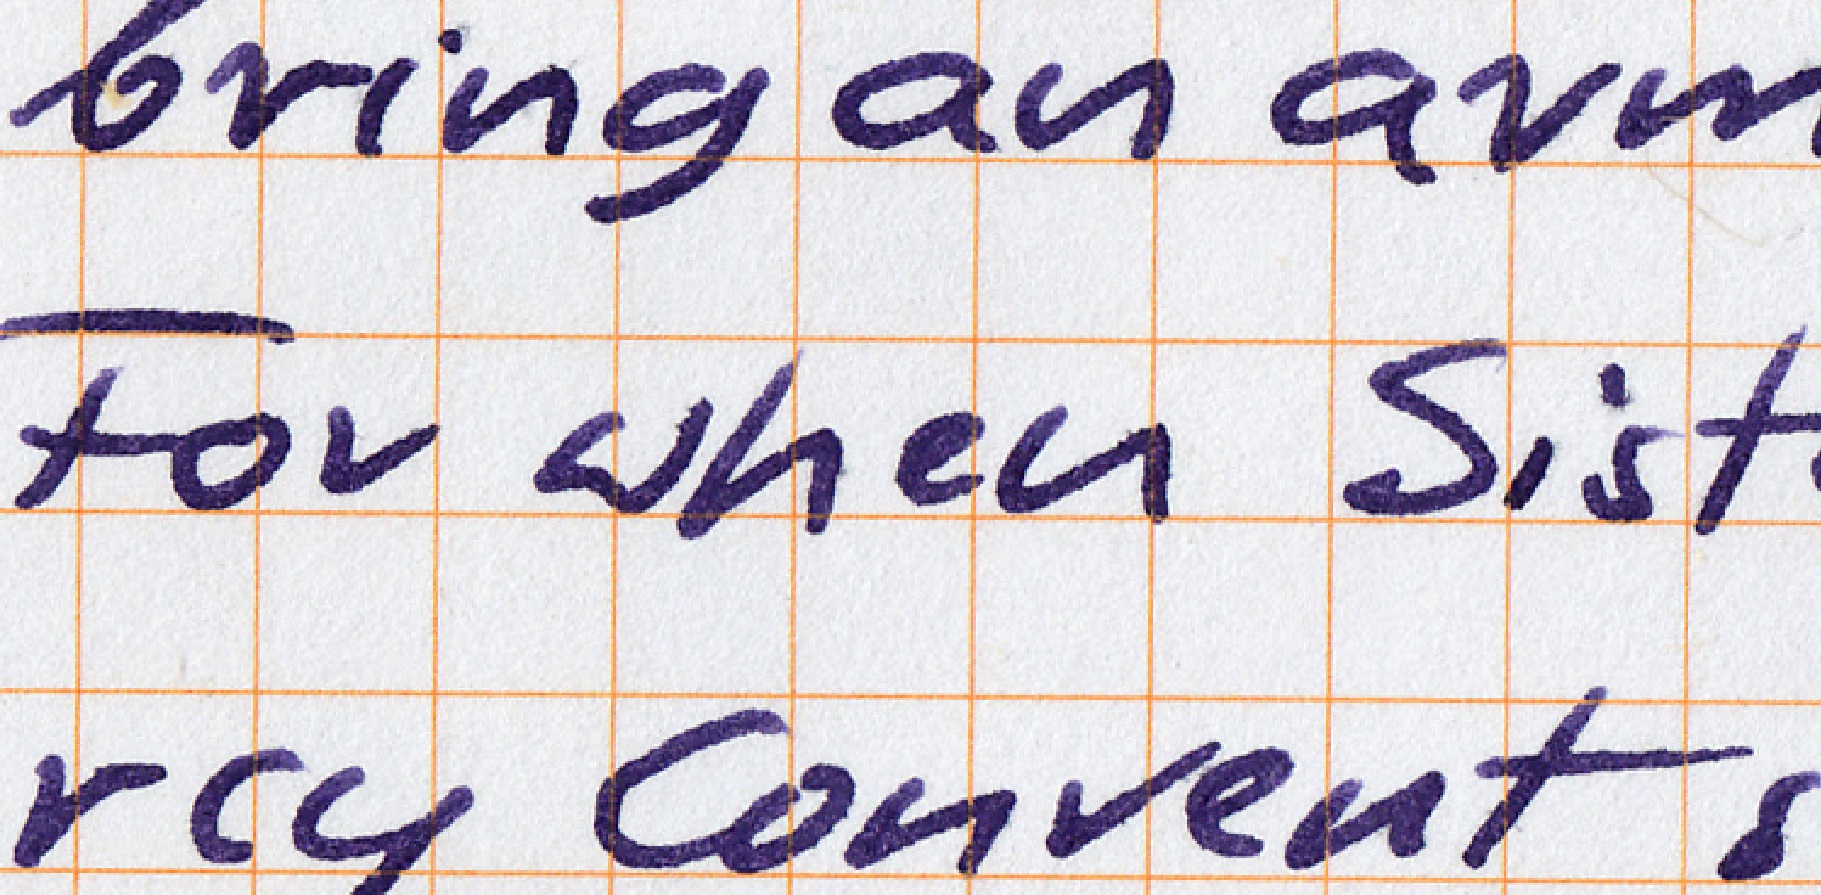 bring an arm
For when Sist
rcy Convent s